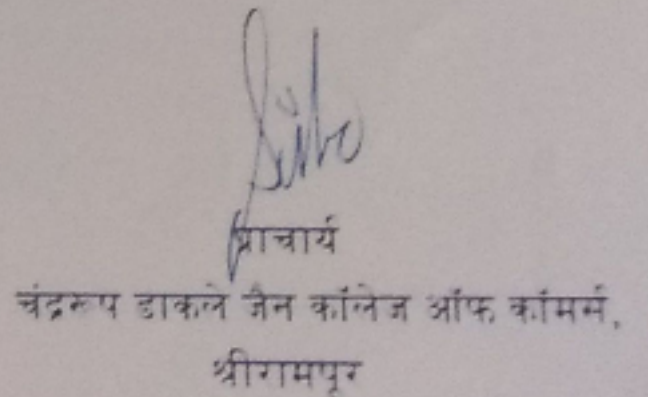 प्राचार्य
चंद्ररूप डाकले जैन कॉलेज ऑफ कॉमर्स,
श्रीरामपूर